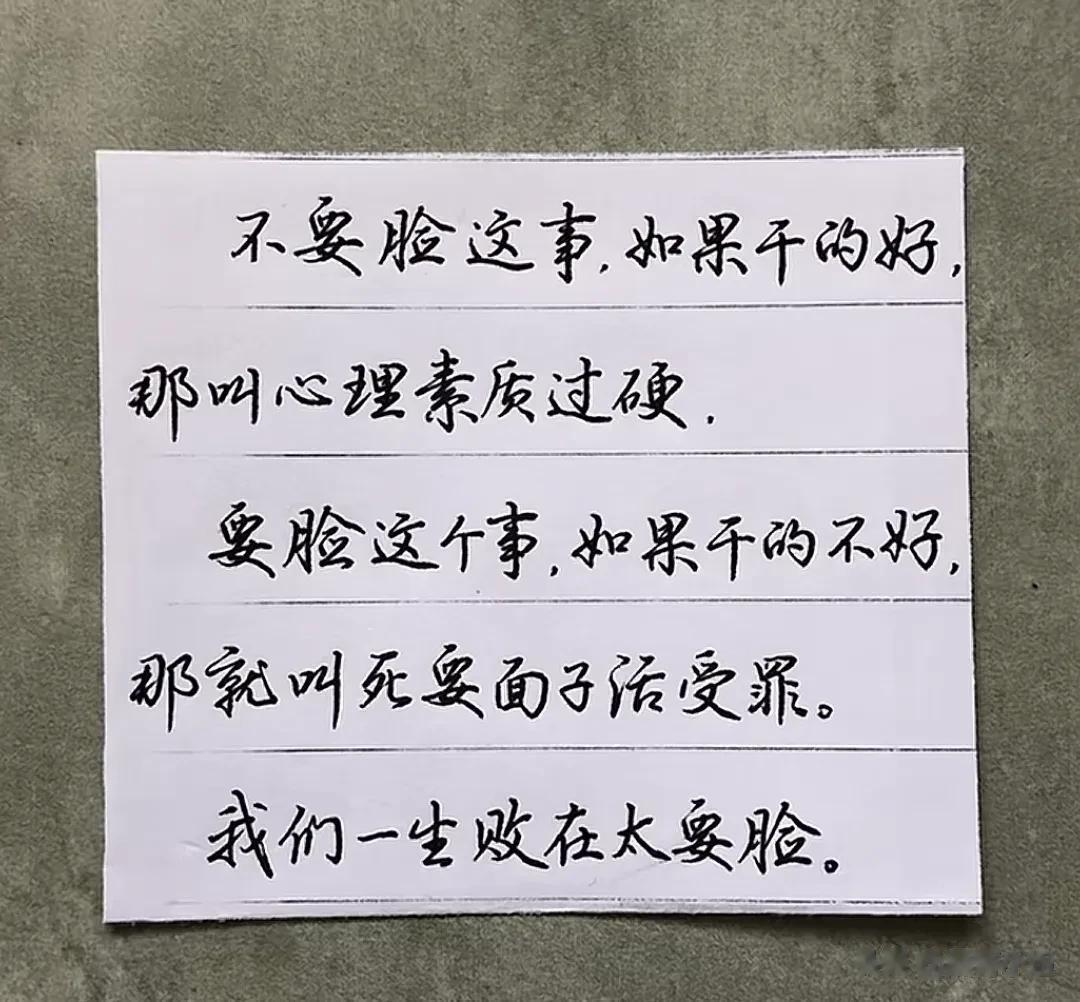 不要脸这事,如果干的好,
那叫心理素质过硬.
要脸这个事,如果干的不好,
那就叫死要面子活受罪。
我们一生败在太要脸。